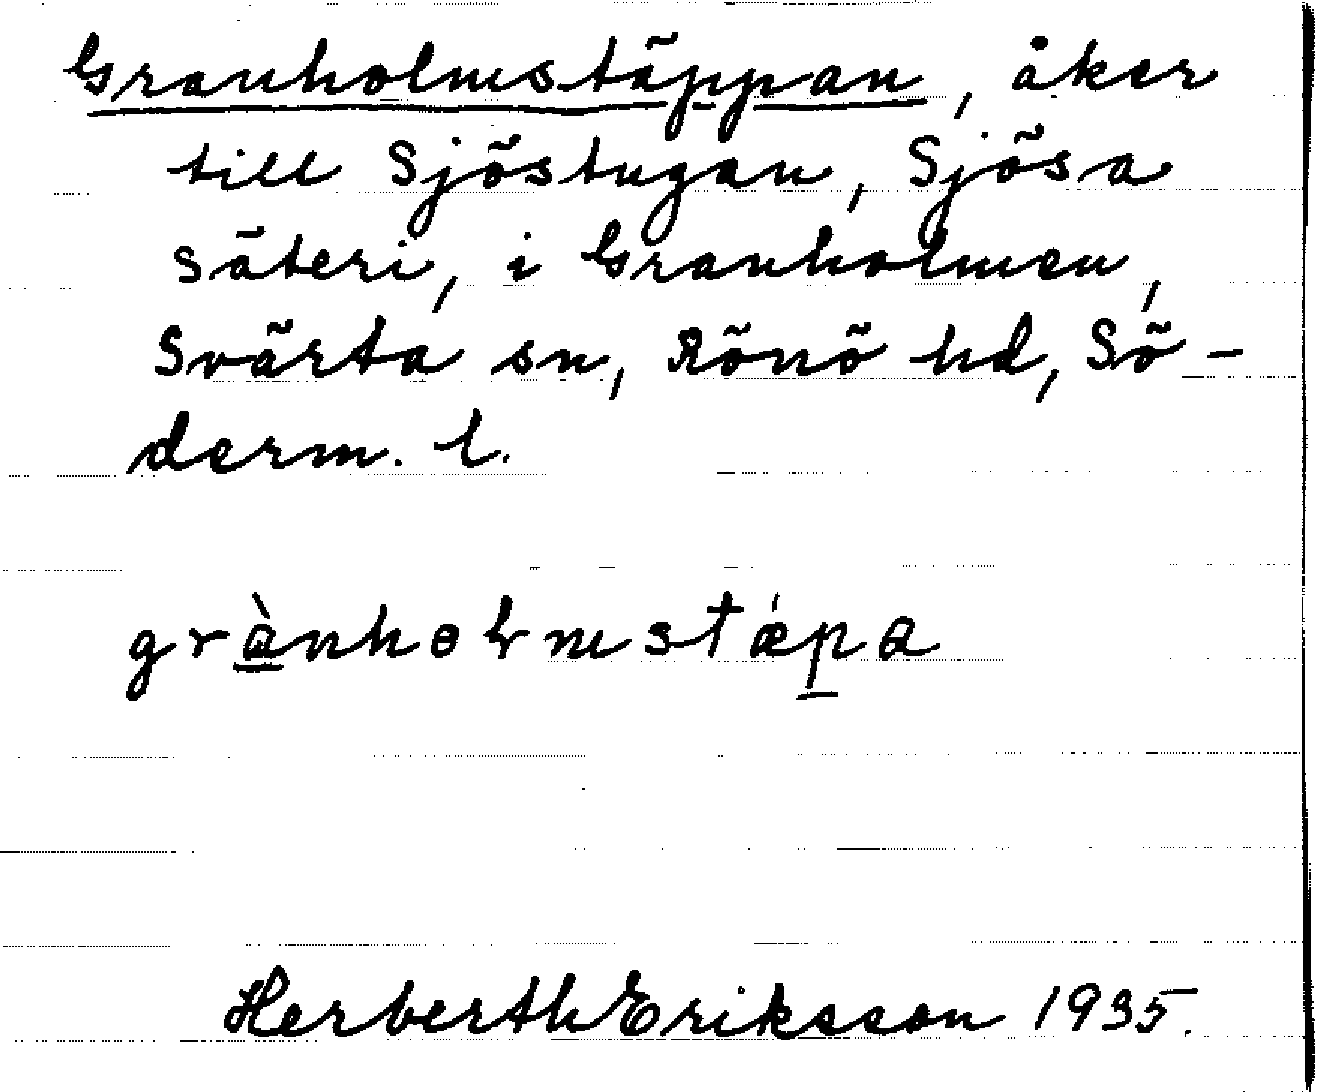 Granholmstäppan, åker
till Sjöstugan, Sjösa
säteri, i Granholmen,
Svärta sn, Rönö hd, Sö-
derm. l.
grànholmstǽpa
Herberth Eriksson 1935.